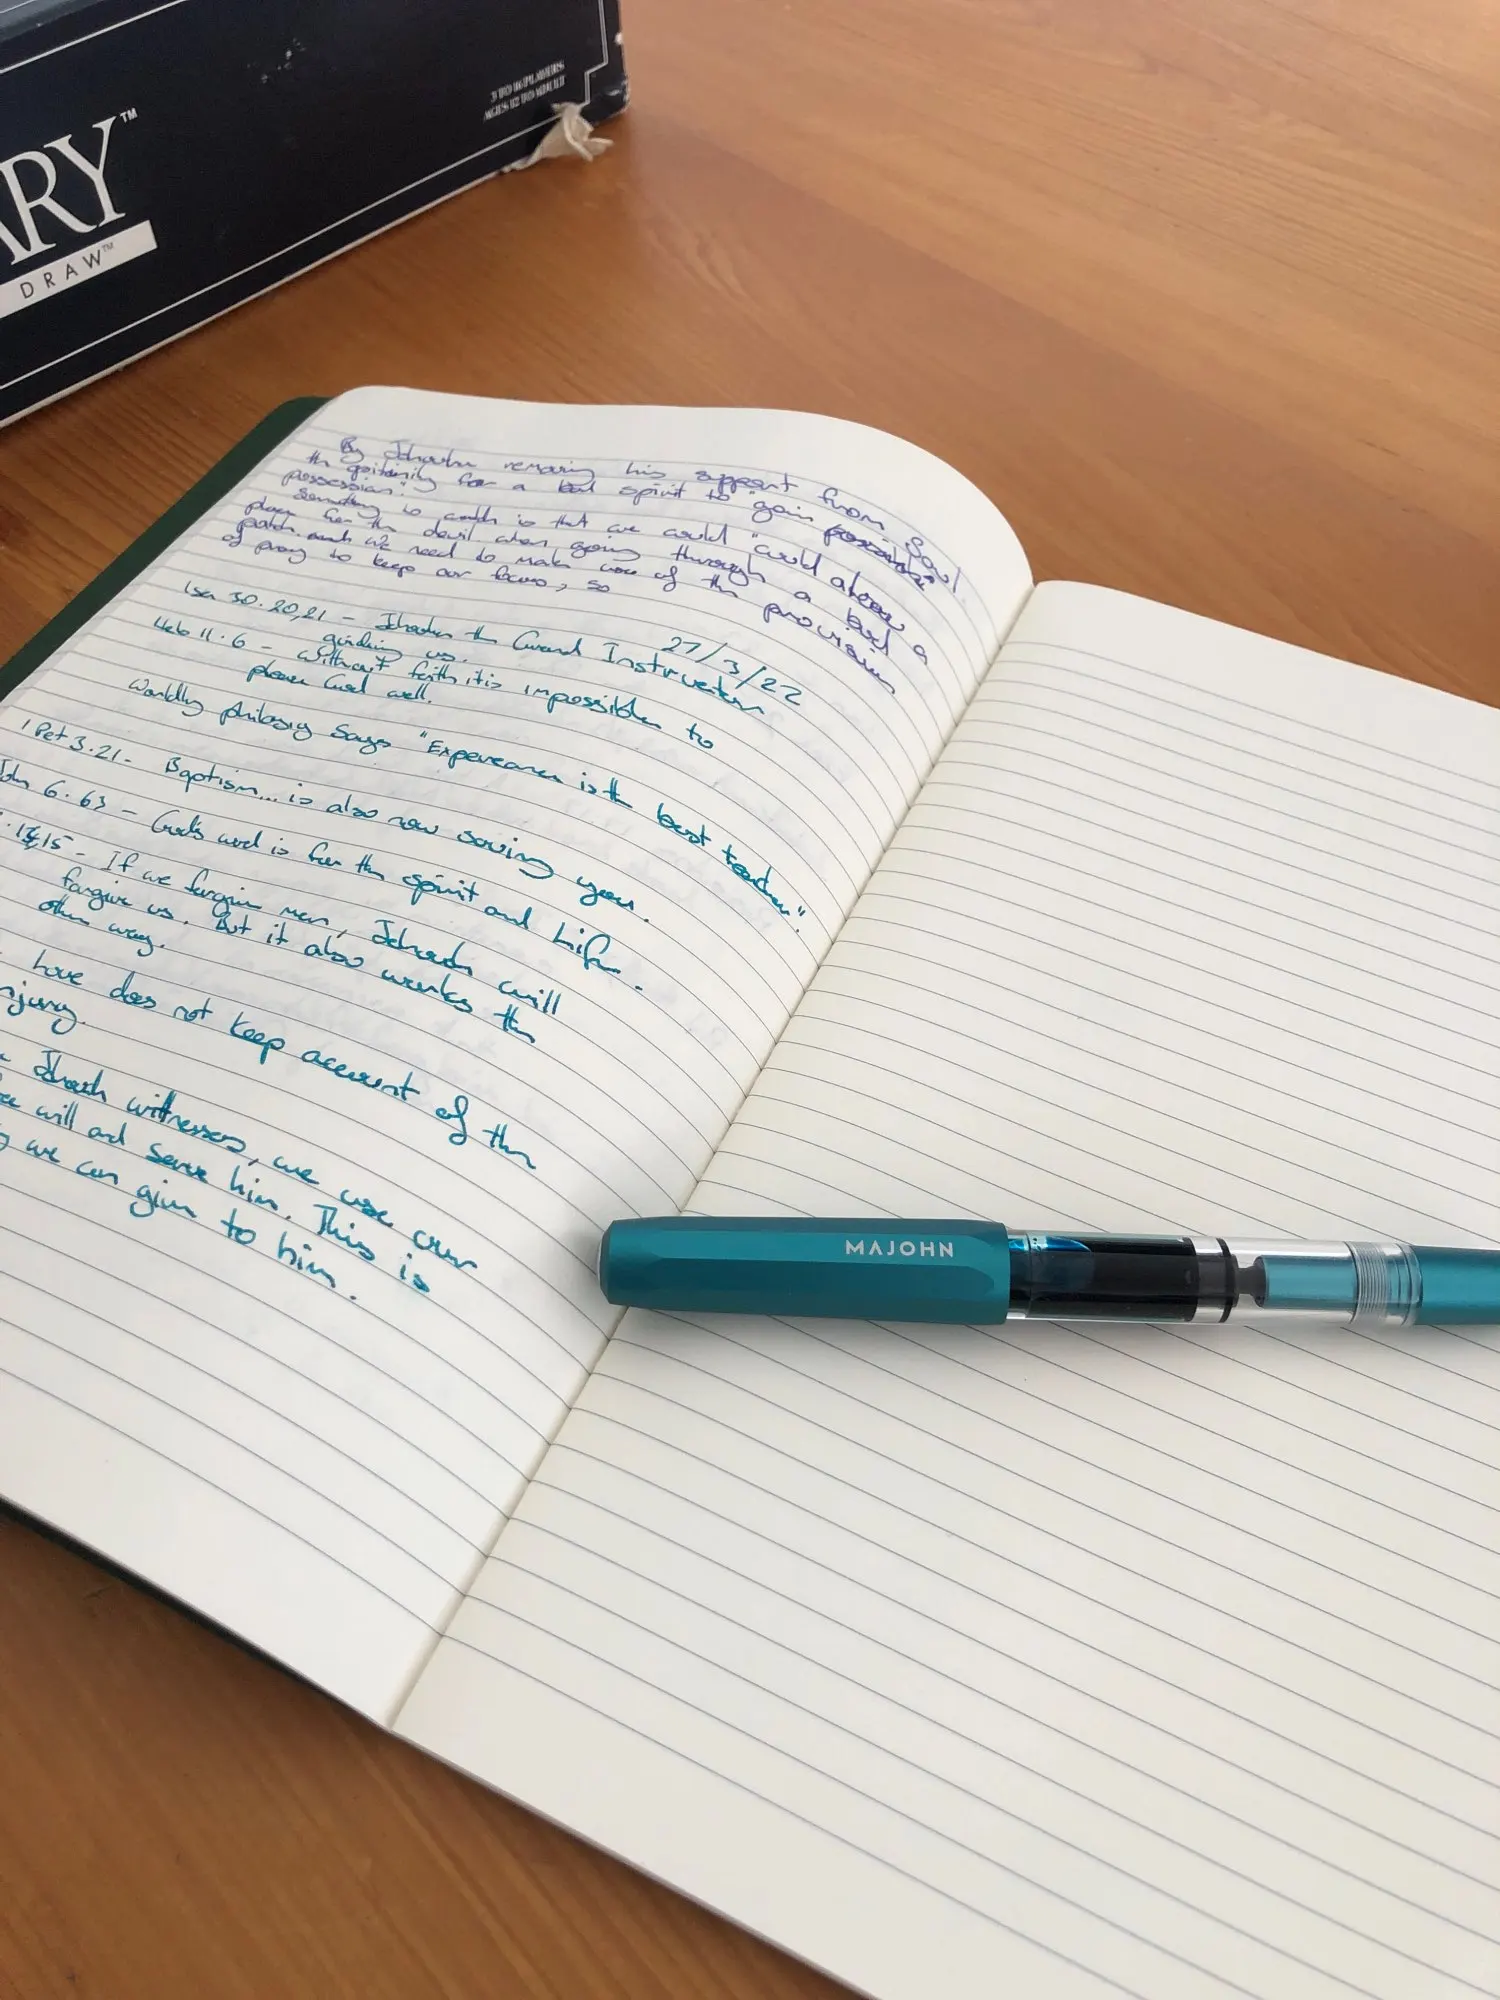 ARY™
DRAW™
3 TO 16 PLAYERS
AGES 12 TO ADULT
By removing his support from Saul
for a bad spirit to "gain
possession".
Something is that we could "
place for the devil when going through a bad
patch and we need to make use of the provision
of pray to keep our focus, so
27/3/22
Isa 30.20,21 - the Grand Instructor
guiding us.
Heb 11.6 - without faith it is impossible to
please God well.
Worldly says "Experience is the best teacher".
1 Pet 3.21 - Baptism... is also now saving you.
John 6.63 - God's word is for the spirit and life.
15 - If we forgive men, Jehovah will
forgive us. But it also works the
other way.
Love does not keep account of the
injury.
Jehovah witnesses, we use our
will and serve him. This is
we can give to him.
MAJOHN